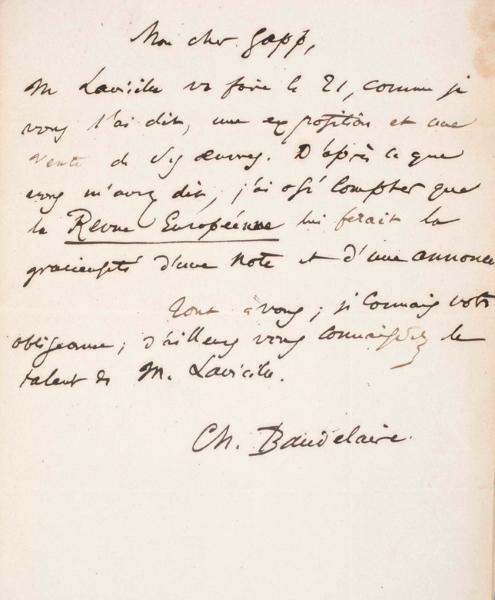 Mon cher Gapp,
M. Lavieille va faire le 21, comme je
vous l'ai dit, une exposition et une
vente de ses œuvres. D'après ce que
vous m'avez dit, j'ai osé compter que
la Revue Européenne lui ferait la
gracieuseté d'une note et d'une annonce
Tout à vous ; je connais votre
obligeance ; d'ailleurs vous connaissez le
talent de M. Lavieille.
Ch. Baudelaire.